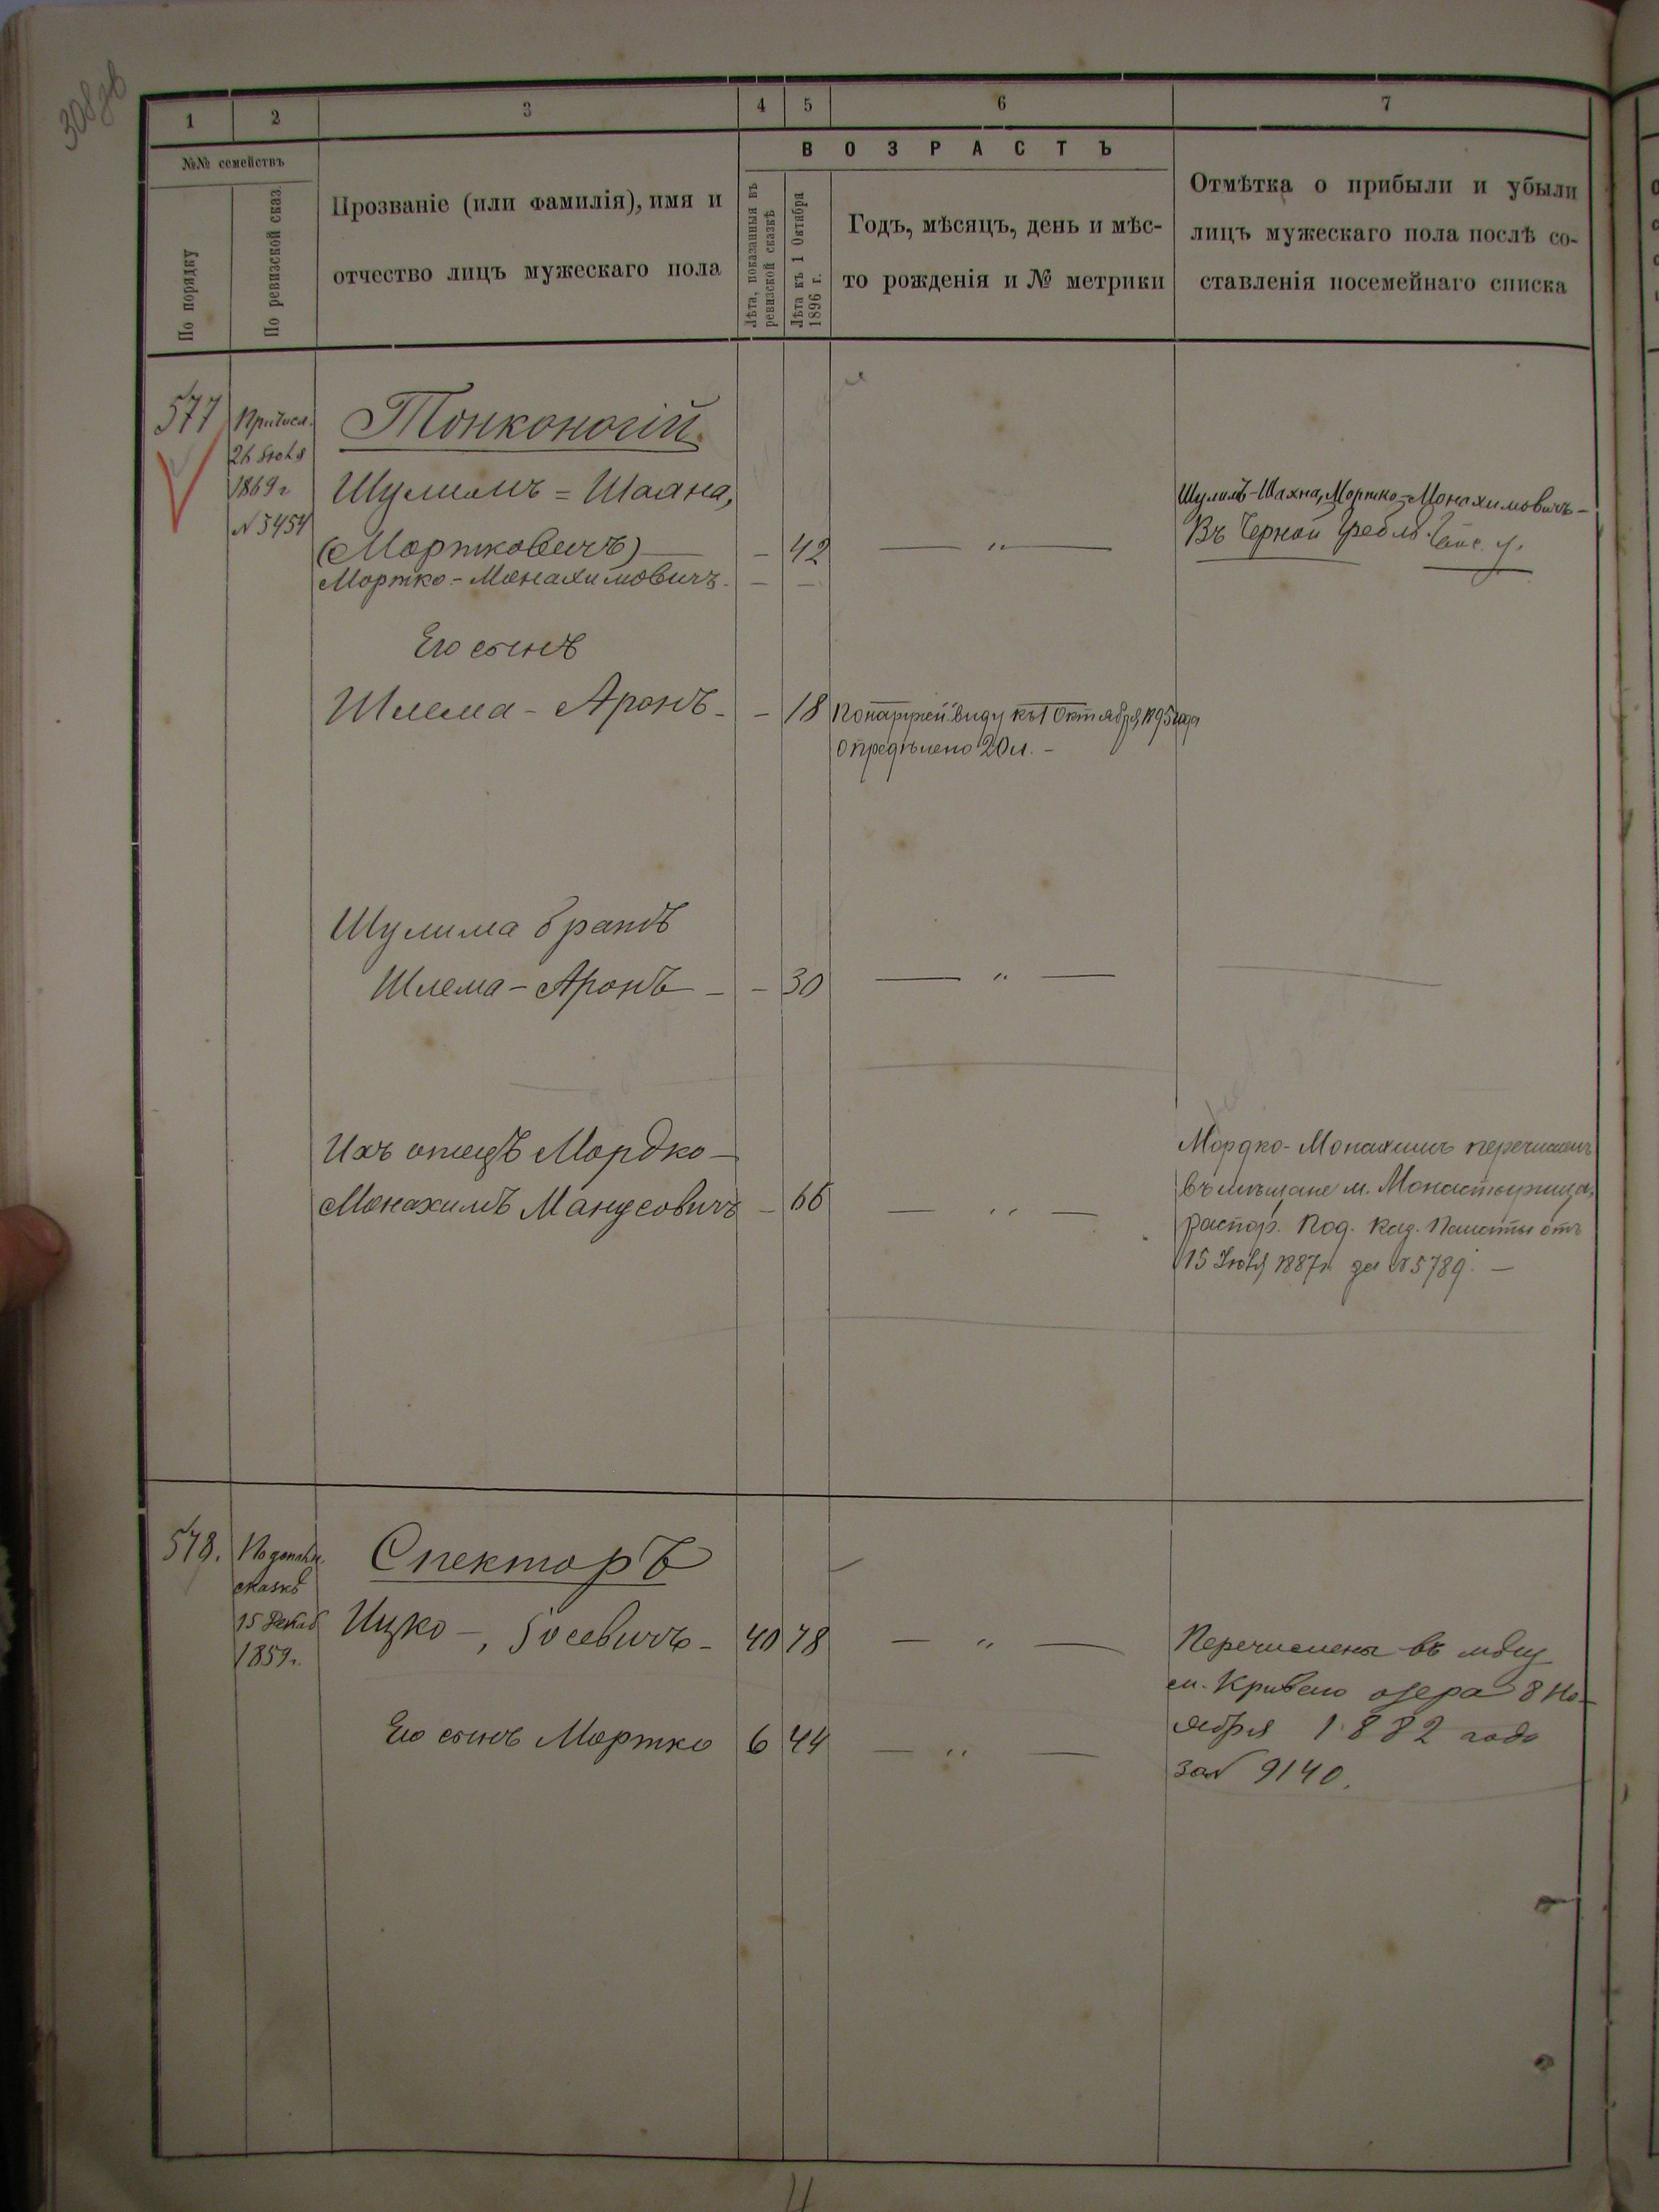 308 об
1 2 3 4 5 6 7
№№ семействъ
По порядку
По ревизской сказ.
Прозваніе (или фамилія), имя и
отчество лицъ мужескаго пола
ВОЗРАСТЪ
Лѣта, показанныя въ
ревизской сказкѣ
Лѣта къ 1 Октября
1896 г.
Годъ, мѣсяцъ, день и мѣс-
то рожденія и № метрики
Отмѣтка о прибыли и убыли
лицъ мужескаго пола послѣ со-
ставленія посемейнаго списка
577
Причисл.
26 Іюля
1869 г
№ 5454
Тонконогій.
Шулимъ = Шахна,
(Мортковичъ) — - 42 — " —
Мортко - Монахимовичъ. - -
Шулимъ-Шахна, Мортко-Монахимовичъ -
Въ Черной Гребли Гайс. у.
Его сынъ
Шлема - Аронъ - - 18
По наружн. виду къ 1 Октября 1895 года
опредѣлено 20 л. -
Шулима братъ
Шлема - Аронъ - - 30 — " —
Ихъ отецъ Мордко -
Монахимъ Манусовичъ - 66 — " —
Мордко - Монахимъ перечисленъ
въ мѣщане м. Монастырища,
распор. Под. Каз. Палаты отъ
15 Іюля 1887 г. за № 5789. -
578.
По дополн.
сказкѣ
15 Декаб
1859 г.
Спекторъ
Ицко -, Іосевичъ - 40 78 — " —
Его сынъ Мортко 6 44 — " —
Перечислены въ мѣщ
м. Кривого озера 8 Но-
ября 1882 года
за № 9140.